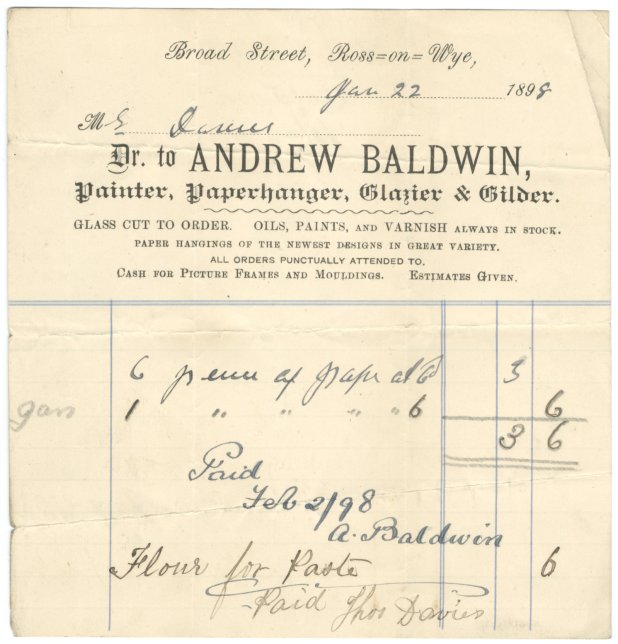 Broad Street, Ross=on=Wye,
Jan 22 1898
Mr Davies
Dr. to ANDREW BALDWIN,
Painter, Paperhanger, Glazier & Gilder.
GLASS CUT TO ORDER. OILS, PAINTS, AND VARNISH ALWAYS IN STOCK.
PAPER HANGINGS OF THE NEWEST DESIGNS IN GREAT VARIETY.
ALL ORDERS PUNCTUALLY ATTENDED TO.
CASH FOR PICTURE FRAMES AND MOULDINGS. ESTIMATES GIVEN.
6 of paper at 6 3
1 " " " " 6 6
3 6
Paid
Feb 2/98
A. Baldwin
Flour for Paste 6
Paid Thos Davies